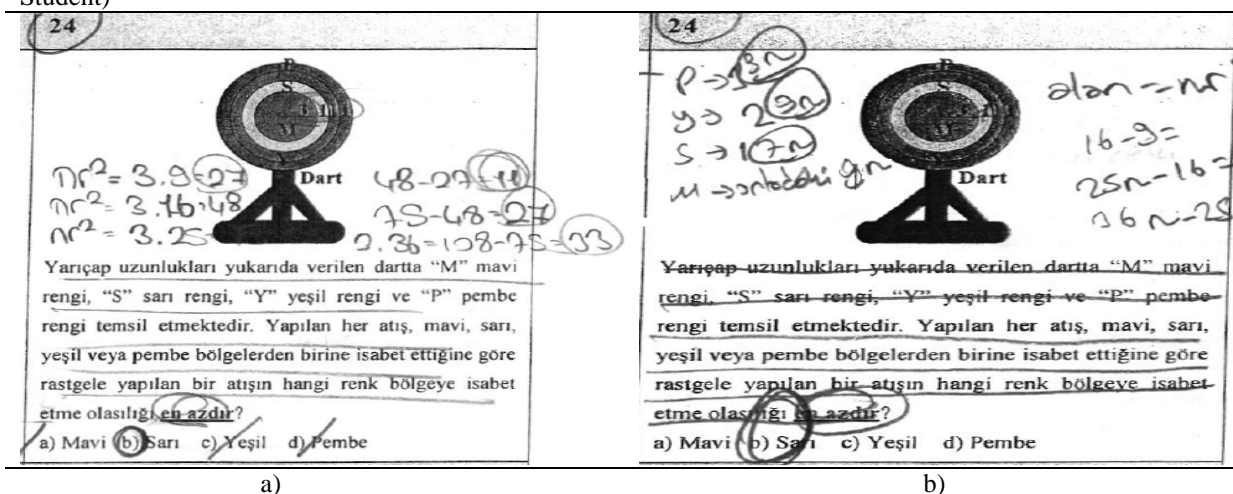 Student)
24
P
S
M
Dart
πr² = 3.9=27
πr² = 3.16=48
πr² = 3.25=
48-27=11
75-48=27
3.36=108-75=33
Yarıçap uzunlukları yukarıda verilen dartta “M” mavi
rengi, “S” sarı rengi, “Y” yeşil rengi ve “P” pembe
rengi temsil etmektedir. Yapılan her atış, mavi, sarı,
yeşil veya pembe bölgelerden birine isabet ettiğine göre
rastgele yapılan bir atışın hangi renk bölgeye isabet
etme olasılığı en azdır?
a) Mavi b) Sarı c) Yeşil d) Pembe
a)
24
P
S
M
Dart
P → 3
y → 2 9π
S → 1 7π
M → ortadaki 9π
alan = πr²
16-9=
25π-16=
36π-25
Yarıçap uzunlukları yukarıda verilen dartta “M” mavi
rengi, “S” sarı rengi, “Y” yeşil rengi ve “P” pembe
rengi temsil etmektedir. Yapılan her atış, mavi, sarı,
yeşil veya pembe bölgelerden birine isabet ettiğine göre
rastgele yapılan bir atışın hangi renk bölgeye isabet
etme olasılığı en azdır?
a) Mavi b) Sarı c) Yeşil d) Pembe
b)